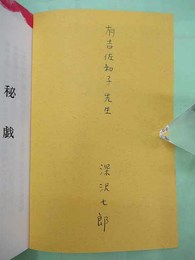 有吉佐和子 先生
深沢七郎
秘戯